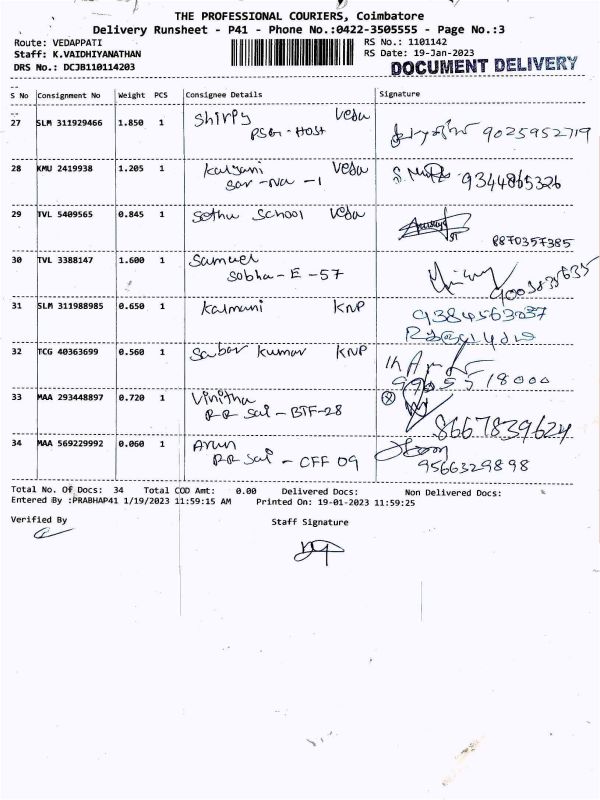 THE PROFESSIONAL COURIERS, Coimbatore
Delivery Runsheet - P41 - Phone No.:0422-3505555 - Page No.:3
Route: VEDAPPATI RS No.: 1101142
Staff: K.VAIDHIYANATHAN RS Date: 19-Jan-2023
DRS No.: DCJB110114203 DOCUMENT DELIVERY
S No Consignment No Weight PCS Consignee Details Signature
27 SLM 311929466 1.850 1 Shirpy Veda
PSG - HOST 9025952719
28 KMU 2419938 1.205 1 Kalyani Veda
Sar - Na - 1 9344865326
29 TVL 5409565 0.845 1 Sethu School Veda
8870357385
30 TVL 3388147 1.600 1 Samuel
Sobha - E - 57 9003835635
31 SLM 311988985 0.650 1 Kalmani KNP 9384563037
32 TCG 40363699 0.560 1 Sabar Kumar KNP
9965518000
33 MAA 293448897 0.720 1 Vinitha
RR Sai - BTF-28 8667839624
34 MAA 569229992 0.060 1 Arun
RR Sai - CFF 09 9566329898
Total No. Of Docs: 34 Total COD Amt: 0.00 Delivered Docs: Non Delivered Docs:
Entered By :PRABHAP41 1/19/2023 11:59:15 AM Printed On: 19-01-2023 11:59:25
Verified By Staff Signature